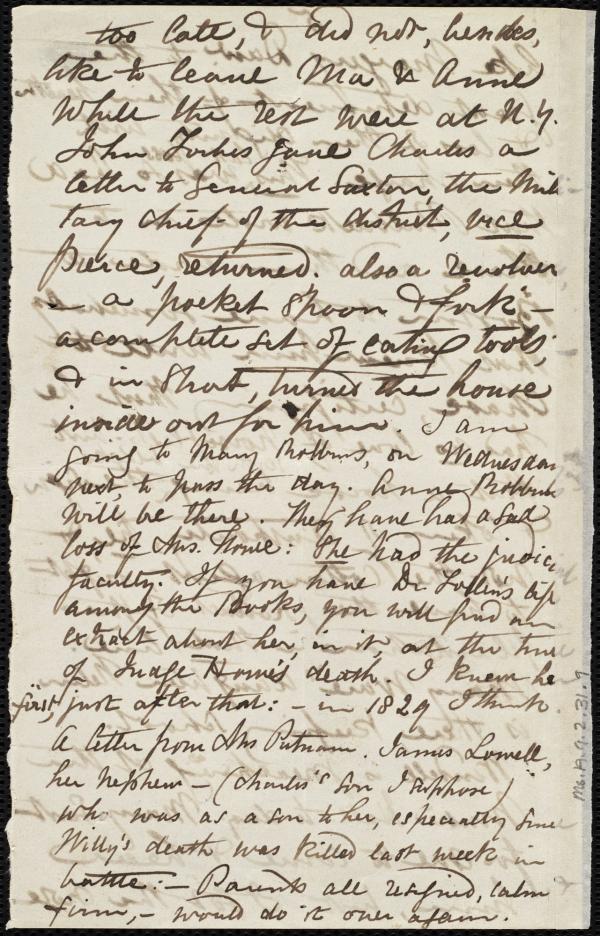 too late, & did not, besides,
like to leave Ma & Anne
while the rest were at N.Y.
John Forbes gave Charles a
letter to General Saxton, the Mili
tary chief of the district, vice
Pierce, returned. also a revolver
– a pocket spoon & fork –
a complete set of eating tools,
& in short, turned the house
inside out for him. I am
going to Mary Robbins, on Wednesday
next, to pass the day. Anne Robbins
will be there. They have had a sad
loss of Mrs. Howe: She had the judici
faculty. If you have Dr Follen's life
among the Books, you will find an
extract about her, in it, at the time
of Judge Howe's death. I knew he
first, just after that: – in 1829 I think.
A letter from Mrs Putnam. James Lowell,
her nephew – (Charles's son I suppose)
who was as a son to her, especially since
Willy's death was killed last week in
battle: – Parents all resigned, calm
firm, – would do it over again.
Ms.A.9.2.31.9